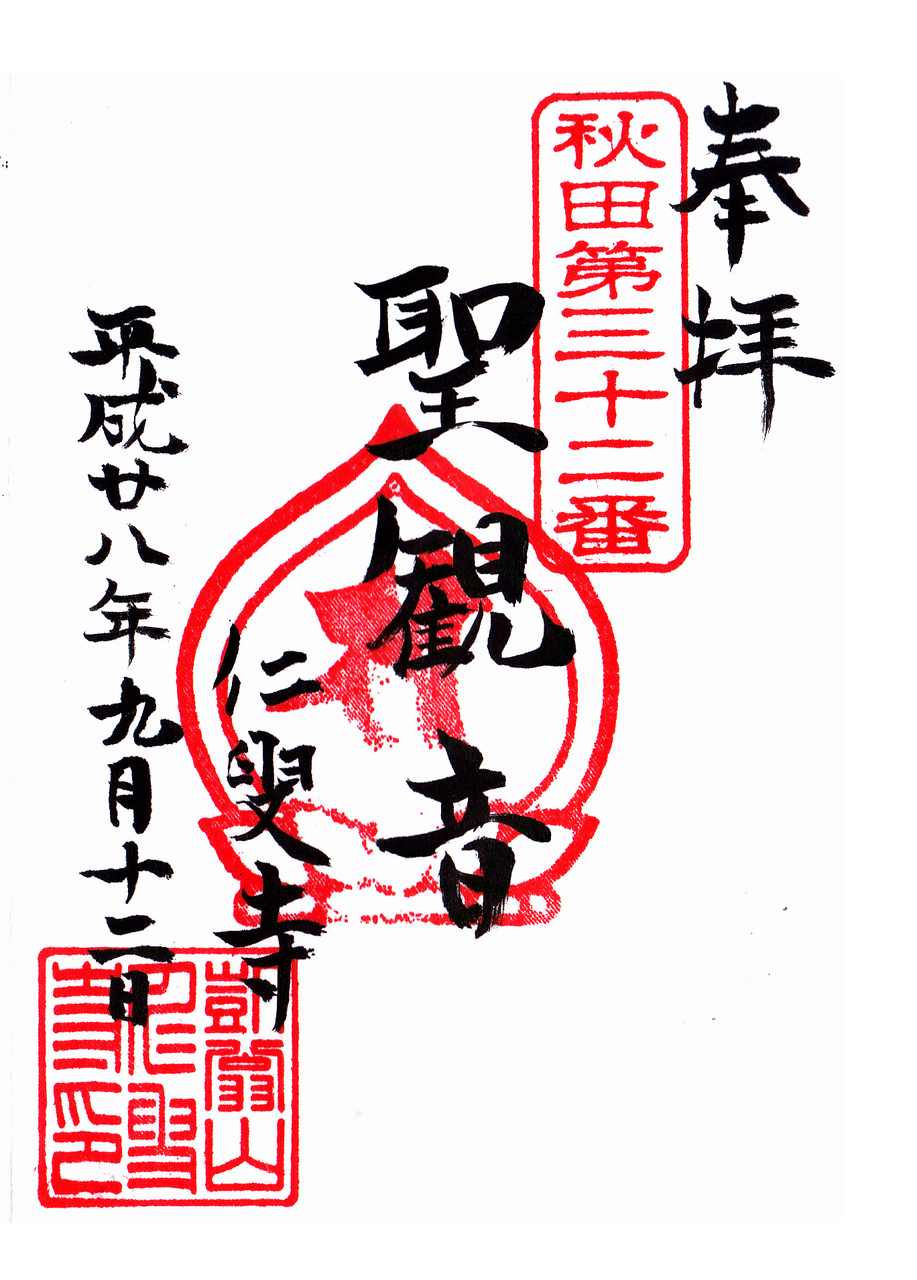 奉拝
秋田第三十二番
聖観音
仁叟寺
平成廿八年九月十二日